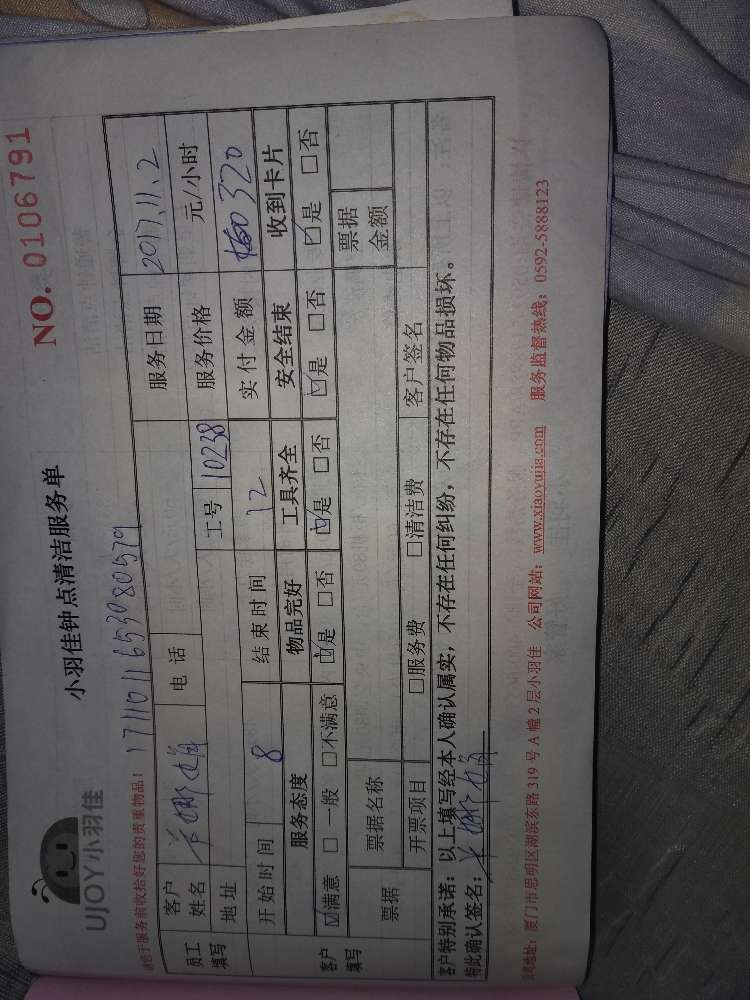 UJOY小羽佳
小羽佳钟点清洁服务单
NO. 0106791
请您于服务前收拾好您的贵重物品!
1711011653080579
员工填写
客户姓名
电话
服务日期 2017.11.2
地址
工号 10238
服务价格 元/小时
开始时间 8
结束时间 12
实付金额 320
客户填写
服务态度 物品完好 工具齐全 安全结束 收到卡片
☑满意 □一般 □不满意 ☑是 □否 ☑是 □否 ☑是 □否 ☑是 □否
票据
票据名称
票据金额
开票项目 □服务费 □清洁费 客户签名
客户特别承诺：以上填写经本人确认属实，不存在任何纠纷，不存在任何物品损坏。
特此确认签名：
公司地址：厦门市思明区湖滨东路 319 号 A 幢 2 层小羽佳 公司网站：www.xiaoyujia.com 服务监督热线：0592-5888123